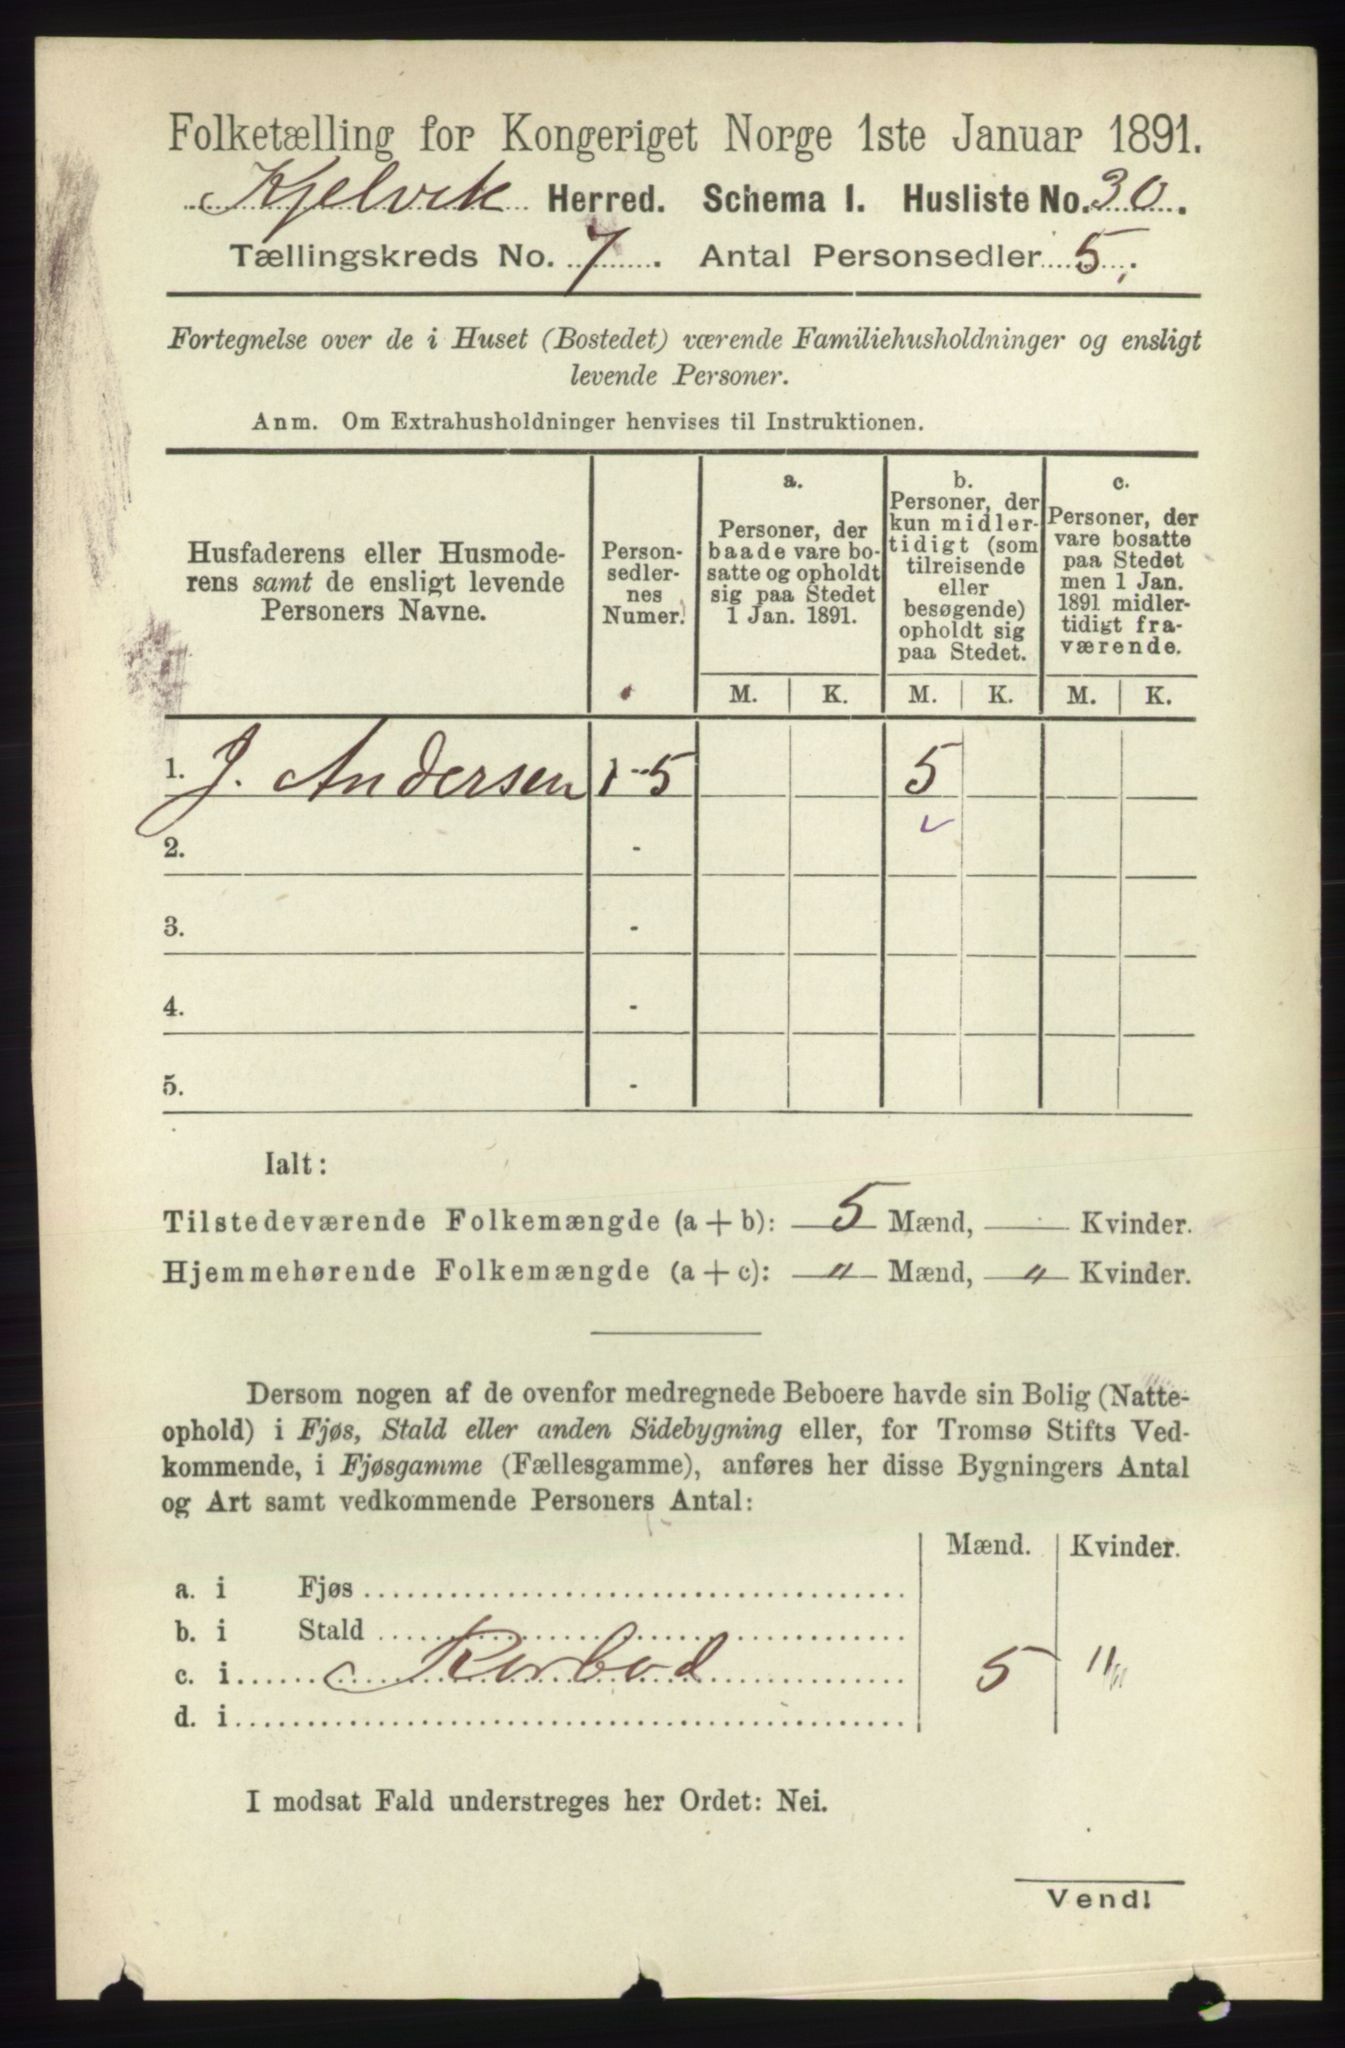 Folketælling for Kongeriget Norge 1ste Januar 1891.
Kjelvik Herred. Schema I. Husliste No. 30.
Tællingskreds No. 7. Antal Personsedler 5.
Fortegnelse over de i Huset (Bostedet) værende Familiehusholdninger og ensligt
levende Personer.
Anm. Om Extrahusholdninger henvises til Instruktionen.
Husfaderens eller Husmode-
rens samt de ensligt levende
Personers Navne.
Person-
sedler-
nes
Numer.
a.
Personer, der
baade vare bo-
satte og opholdt
sig paa Stedet
1 Jan. 1891.
b.
Personer, der
kun midler-
tidigt (som
tilreisende
eller
besøgende)
opholdt sig
paa Stedet.
c.
Personer, der
vare bosatte
paa Stedet
men 1 Jan.
1891 midler-
tidigt fra-
værende.
M. K. M. K. M. K.
1. J. Andersen 1-5 5
2. -
3. -
4. -
5. -
Ialt:
Tilstedeværende Folkemængde (a+b): 5 Mænd, - Kvinder.
Hjemmehørende Folkemængde (a+c): " Mænd, " Kvinder.
Dersom nogen af de ovenfor medregnede Beboere havde sin Bolig (Natte-
ophold) i Fjøs, Stald eller anden Sidebygning eller, for Tromsø Stifts Ved-
kommende, i Fjøsgamme (Fællesgamme), anføres her disse Bygningers Antal
og Art samt vedkommende Personers Antal:
Mænd. Kvinder.
a. i Fjøs
b. i Stald
c. i Rorbod 5 "
d. i
I modsat Fald understreges her Ordet: Nei.
Vend!